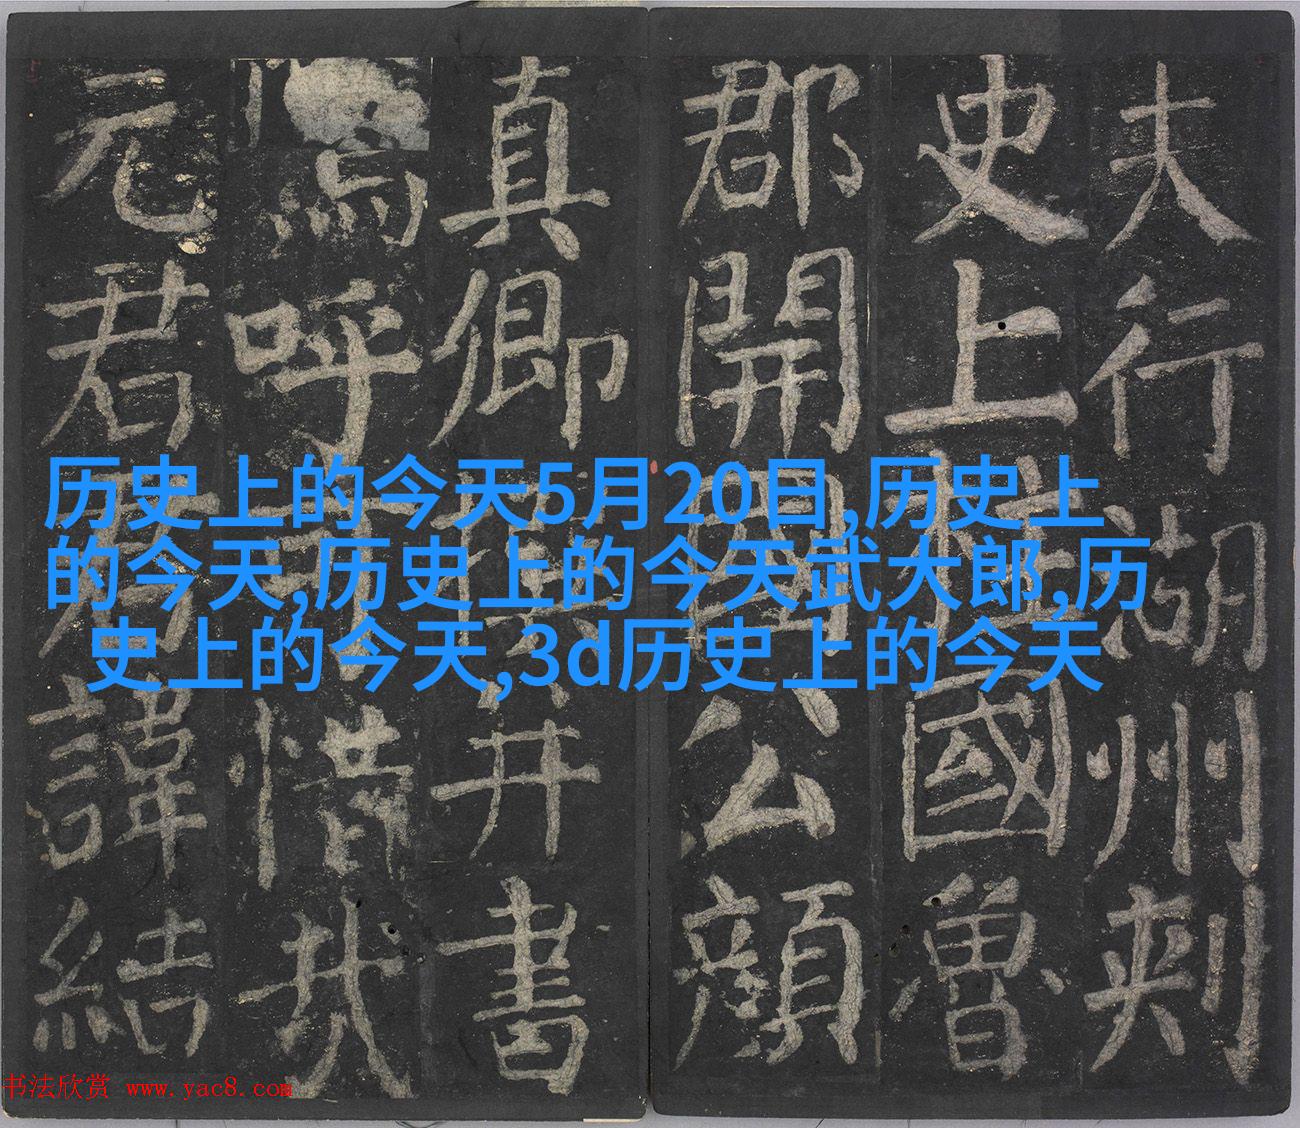 夫行湖州刺
史上柱國魯
郡開國公顏
真卿撰并書
嗚呼惜哉
元君諱結
历史上的今天5月20日,历史上
的今天,历史上的今天武大郎,历
史上的今天,3d历史上的今天
书法欣赏 www.yac8.com